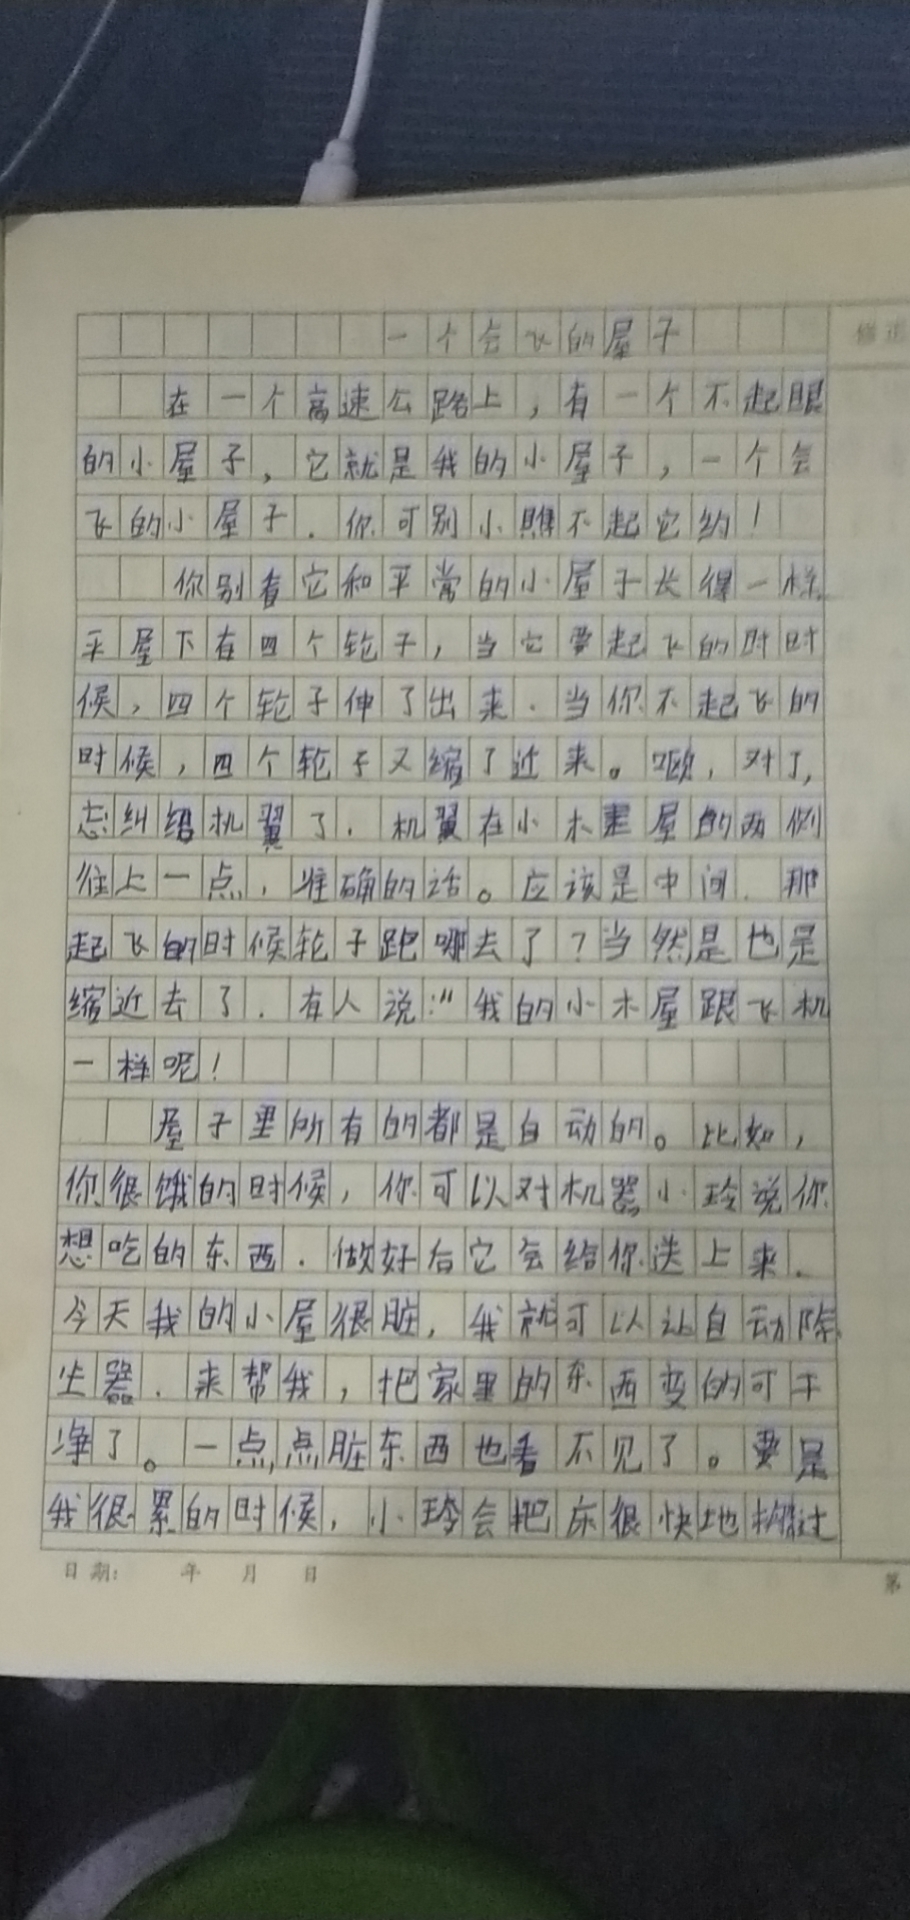 修正
一个会飞的屋子
在一个高速公路上，有一个不起眼
的小屋子，它就是我的小屋子，一个会
飞的小屋子．你可别小瞧不起它约！
你别看它和平常的小屋子长得一样
平屋下有四个轮子，当它要起飞的时时
候，四个轮子伸了出来．当你不起飞的
时候，四个轮子又缩了近来。呕，对了，
忘纠绍机翼了．机翼在小木屋的两侧
往上一点，准确的话。应该是中间．那
起飞的时候轮子跑哪去了？当然是也是
缩近去了．有人说："我的小木屋跟飞机
一样呢！
屋子里所有的都是自动的。比如，
你很饿的时候，你可以对机器小玲说你
想吃的东西．做好后它会给你送上来．
今天我的小屋很脏，我就可以让自动除
尘器．来帮我，把家里的东西变的可干
净了。一点点脏东西也看不见了。要是
我很累的时候，小玲会把床很快地
日期： 年 月 日
第